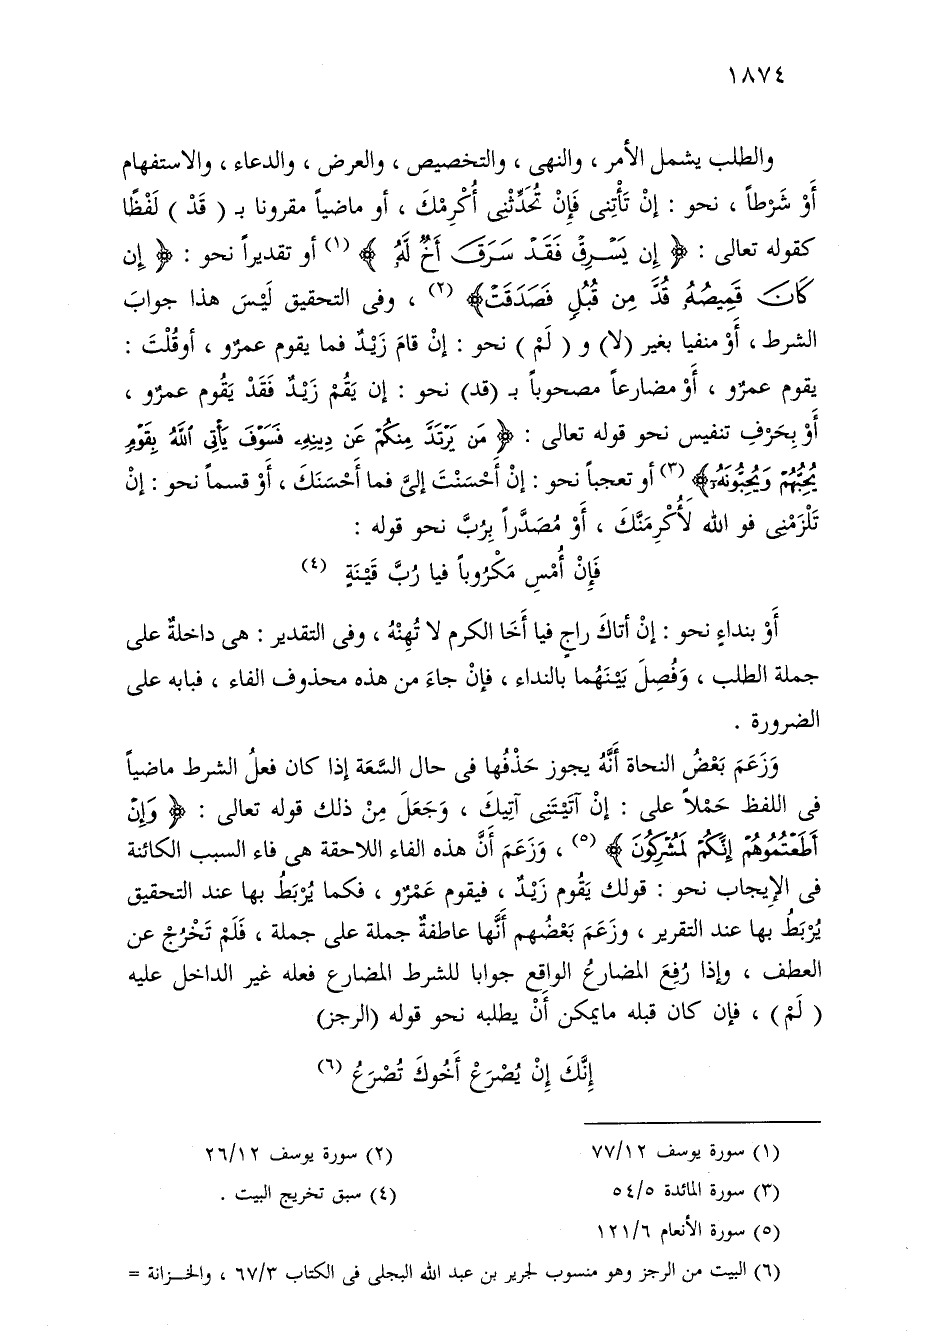 ١٨٧٤
والطلب يشمل الأمر ، والنهى ، والتخصيص ، والعرض ، والدعاء ، والاستفهام
أَوْ شَرْطاً ، نحو : إنْ تَأْتِنِى فَإِنْ تُحَدِّثْنِى أُكْرِمْكَ ، أو ماضياً مقرونا بـ ( قَدْ ) لَفْظًا
كقوله تعالى : ﴿ إِن يَسْرِقْ فَقَدْ سَرَقَ أَخٌ لَّهُ ﴾ (١) أو تقديراً نحو : ﴿ إِن
كَانَ قَمِيصُهُ قُدَّ مِن قُبُلٍ فَصَدَقَتْ﴾ (٢) ، وفى التحقيق لَيْسَ هذا جوابَ
الشرط ، أَوْ منفيا بغير (لا) و ( لَمْ ) نحو : إنْ قامَ زَيْدٌ فما يقوم عمرٌو ، أوقُلْتَ :
يقوم عمرٌو ، أَوْ مضارعاً مصحوباً بـ (قد) نحو : إن يَقُمْ زَيْدٌ فَقَدْ يَقُوم عمرٌو ،
أَوْ بِحَرْفِ تنفيس نحو قوله تعالى : ﴿ مَن يَرْتَدَّ مِنكُمْ عَن دِينِهِۦ فَسَوْفَ يَأْتِى ٱللَّهُ بِقَوْمٍ
يُحِبُّهُمْ وَيُحِبُّونَهُۥٓ﴾ (٣) أو تعجباً نحو : إنْ أَحْسَنْتَ إلىَّ فما أَحْسَنَكَ ، أَوْ قسماً نحو : إنْ
تَلْزَمْنِى فو الله لَأُكْرِمَنَّكَ ، أَوْ مُصَدَّراً بِرُبَّ نحو قوله :
فَإِنْ أُمْسِ مَكْرُوباً فيا رُبَّ قَيْنَةٍ (٤)
أَوْ بنداءٍ نحو : إنْ أتاكَ راجٍ فيا أَخَا الكرم لا تُهِنْهُ ، وفى التقدير : هى داخلةٌ على
جملة الطلب ، وَفُصِلَ بَيْنَهُما بالنداء ، فإنْ جاءَ من هذه محذوف الفاء ، فبابه على
الضرورة .
وَزَعَمَ بَعْضُ النحاة أَنَّهُ يجوز حَذْفُها فى حال السَّعَة إذا كان فعلُ الشرط ماضياً
فى اللفظ حَمْلاً على : إنْ آتَيْتَنِى آتِيكَ ، وَجَعَلَ مِنْ ذلك قوله تعالى : ﴿ وَإِنْ
أَطَعْتُمُوهُمْ إِنَّكُمْ لَمُشْرِكُونَ ﴾ (٥) ، وَزَعَمَ أَنَّ هذه الفاء اللاحقة هى فاء السبب الكائنة
فى الإيجاب نحو : قولك يَقُوم زَيْدٌ ، فيقوم عَمْرٌو ، فكما يُرْبَطُ بها عند التحقيق
يُرْبَطُ بها عند التقرير ، وزَعَمَ بَعْضُهم أَنَّها عاطفةٌ جملة على جملة ، فَلَمْ تَخْرُجْ عن
العطف ، وإذا رُفِعَ المضارعُ الواقع جوابا للشرط المضارع فعله غير الداخل عليه
( لَمْ ) ، فإن كان قبله مايمكن أَنْ يطلبه نحو قوله (الرجز)
إنَّكَ إنْ يُصْرَعْ أَخُوكَ تُصْرَعُ (٦)
(١) سورة يوسف ٧٧/١٢
(٢) سورة يوسف ٢٦/١٢
(٣) سورة المائدة ٥٤/٥
(٤) سبق تخريج البيت .
(٥) سورة الأنعام ١٢١/٦
(٦) البيت من الرجز وهو منسوب لجرير بن عبد الله البجلى فى الكتاب ٦٧/٣ ، والخـزانة =